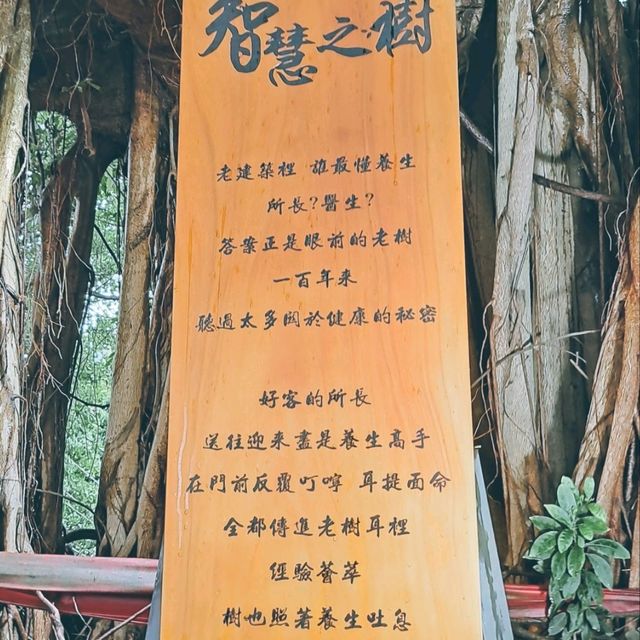 智慧之樹
老建築裡 誰最懂養生
所長?醫生?
答案正是眼前的老樹
一百年來
聽過太多関於健康的秘密
好客的所長
送往迎來盡是養生高手
在門前反覆叮嚀 耳提面命
全都傳進老樹耳裡
經驗薈萃
樹也照著養生吐息